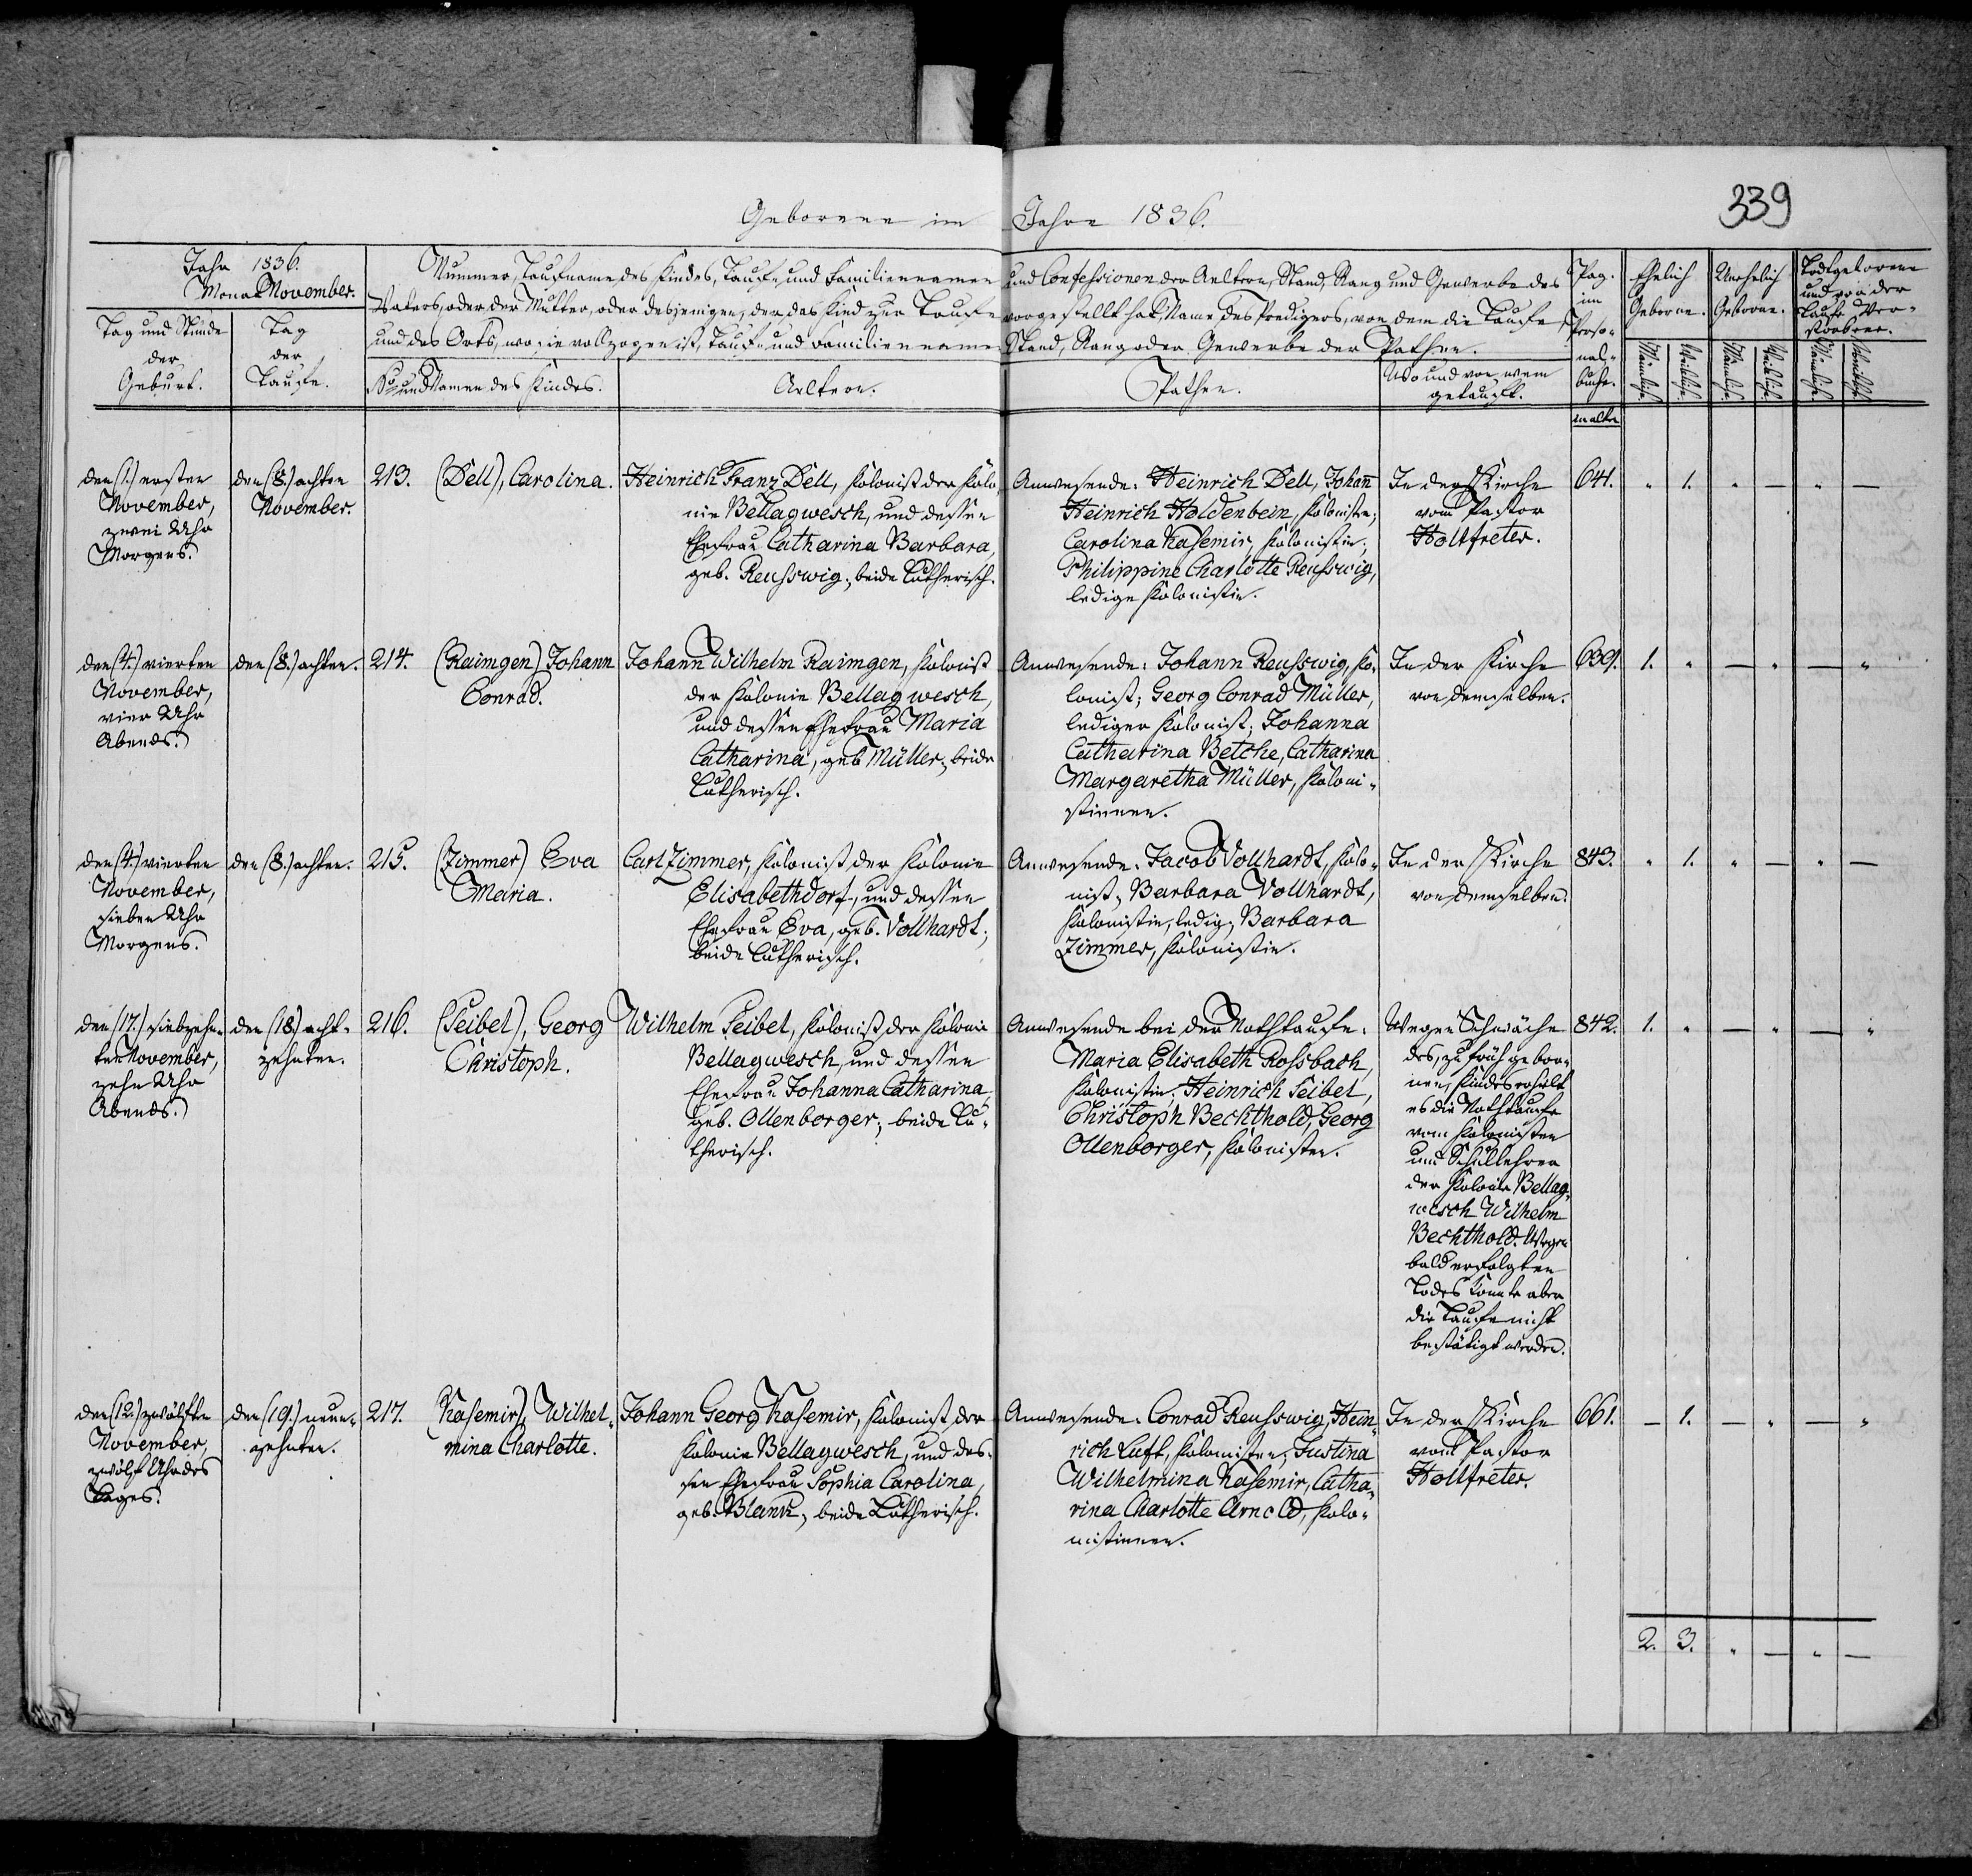 339
Geborene im Jahre 1836.
Jahr 1836.
Monat November.
Tag und Stunde
der
Geburt.
Tag
der
Taufe.
Nummer, Taufname des Kindes, Tauf- und Familiennamen und Confessionen der Aeltern, Stand, Rang und Gewerbe des
Vaters, oder der Mutter, oder desjenigen, der das Kind zur Taufe vorgestellt hat, Name des Predigers, von dem die Taufe
und des Orts, wo sie vollzogen ist, Tauf- und Familienname Stand, Rang oder Gewerbe der Pathen.
No und Namen des Kindes.
Aeltern.
Pathen.
Wo und von wem
getauft.
Pag.
im
Perso-
nal-
buche.
Ehelich
Geborne.
Unehelich
Geborne.
Todtgeborene
und vor der
Taufe Ver-
storbene.
Männliche.
Weibliche.
Männliche.
Weibliche.
Männliche.
Weibliche.
im alten
den (1.) ersten
November,
zwei Uhr
Morgens.
den (8.) achten
November.
213. (Dell), Carolina.
Heinrich Franz Dell, Kolonist der Kolo-
nie Bellagwesch, und dessen
Ehefrau Catharina Barbara,
geb. Reusswig; beide Lutherisch.
Anwesende: Heinrich Dell, Johann
Heinrich Holdenbein, Kolonisten;
Carolina Kasemir, Kolonistin;
Philippine Charlotte Reusswig,
ledige Kolonistin.
In der Kirche
vom Pastor
Holtfreter.
641. " 1. " — " —
den (4.) vierten
November,
vier Uhr
Abends.
den (8.) achten.
214. (Raimgen) Johann
Conrad.
Johann Wilhelm Raimgen, Kolonist
der Kolonie Bellagwesch,
und dessen Ehefrau Maria
Catharina, geb Müller; beide
Lutherisch.
Anwesende: Johann Reusswig, Ko-
lonist; Georg Conrad Müller,
lediger Kolonist; Johanna
Catharina Betche, Catharina
Margaretha Müller, Koloni-
stinnen.
In der Kirche
von demselben.
639. 1. " — " — "
den (4.) vierten
November,
sieben Uhr
Morgens.
den (8.) achten.
215. (Zimmer) Eva
Maria.
Carl Zimmer, Kolonist der Kolonie
Elisabethdorf, und dessen
Ehefrau Eva, geb. Vollhardt;
beide Lutherisch.
Anwesende: Jacob Vollhardt, Kolo-
nist; Barbara Vollhardt,
Kolonistin, ledig; Barbara
Zimmer, Kolonistin.
In der Kirche
von demselben.
843. " 1. " — " —
den (17.) siebzehn-
ten November,
zehn Uhr
Abends.
den (18.) acht-
zehnten.
216. (Seibel), Georg
Christoph.
Wilhelm Seibel, Kolonist der Kolonie
Bellagwesch, und dessen
Ehefrau Johanna Catharina,
geb. Ollenborger; beide Lu-
therisch.
Anwesende bei der Nothtaufe:
Maria Elisabeth Rossbach,
Kolonistin; Heinrich Seibel,
Christoph Bechthold, Georg
Ollenborger, Kolonisten.
Wegen Schwäche
des, zu früh gebor-
nen, Kindes erhielt
es die Nothtaufe
vom Kolonisten
und Schullehrer
der Kolonie Bellag-
wesch Wilhelm
Bechthold. Wegen
bald erfolgten
Todes konnte aber
die Taufe nicht
bestätigt werden.
842. 1. " — " — "
den (12.) zwölften
November,
zwölf Uhr des
Tages.
den (19.) neun-
zehnten.
217. (Kasemir), Wilhel-
mina Charlotte.
Johann Georg Kasemir, Kolonist der
Kolonie Bellagwesch, und des-
sen Ehefrau Sophia Carolina,
geb. Blank; beide Lutherisch.
Anwesende: Conrad Reusswig, Hein-
rich Luft, Kolonisten; Justina
Wilhelmina Kasemir, Catha-
rina Charlotte Arnold, Kolo-
nistinnen.
In der Kirche
vom Pastor
Holtfreter.
661. — 1. — " — "
2. 3. " — " —